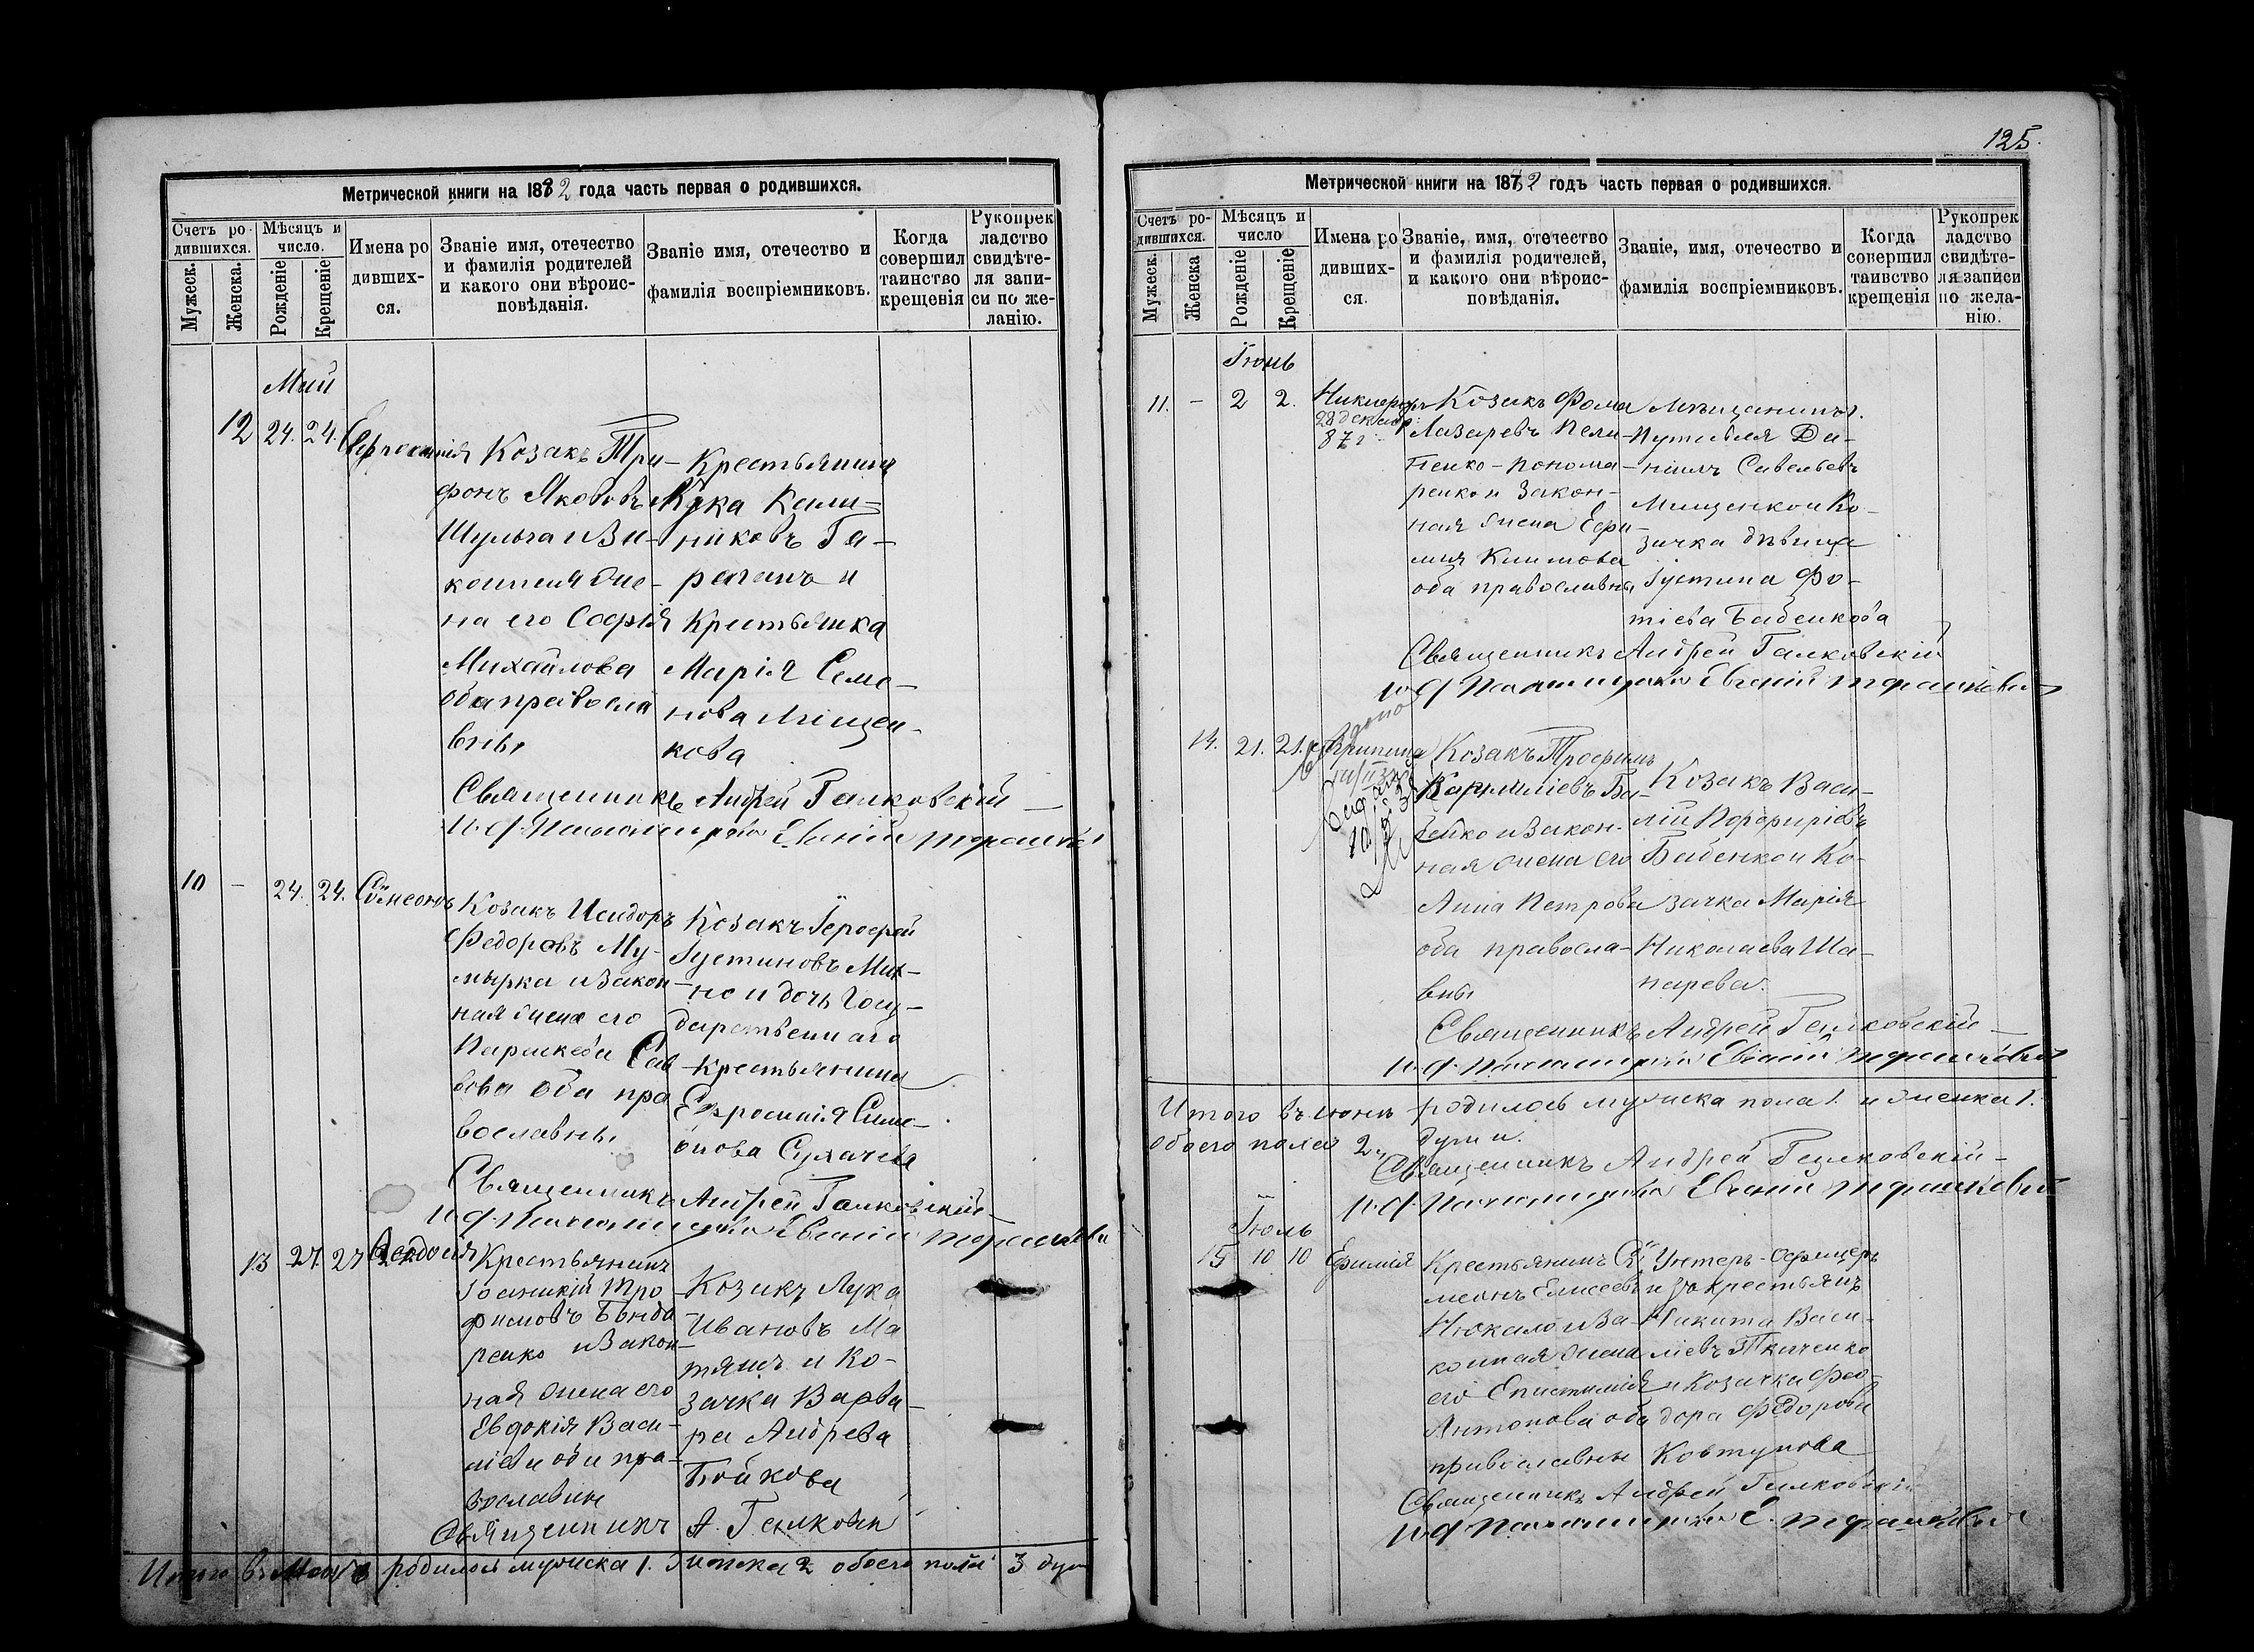 125.
Метрической книги на 1882 года часть первая о родившихся.
Счетъ ро-дившихся.
Мѣсяцъ и число.
Мужеск.
Женска.
Рожденіе
Крещеніе
Имена ро
дивших-
ся.
Званіе имя, отечество
и фамилія родителей
и какого они вѣроис-
повѣданія.
Званіе имя, отечество и
фамилія воспріемниковъ.
Когда
совершил
таинство
крещенія
Рукопрек
ладство
свидѣте-
ля запи-
си по же-
ланію.
Май
12 24. 24.
Козакъ Три-
фонъ Якововъ
Шульга и За-
конная же-
на его Софія
Михайлова
оба правосла
вны
Крестьянинъ
Лука Кали-
никовъ Та-
раганъ и
Крестьянка
Марія Семе-
нова Мищен-
кова
Священникъ Андрей Галковскій
и. д. Псаломщика Евгеній
10 - 24. 24. Сѵмеонъ
Козакъ Исидоръ
Федоровъ Му-
мырка и Закон-
ная жена его
Параскева Сав
вова оба пра
вославны
Козакъ Іерофей
Іустиновъ Мих-
но и дочь Госу-
дарственнаго
крестьянина
Евфросинія Симе-
онова
Священникъ Андрей Галковскій
и. д. Псаломщика Евгеній
13 27. 27 Феодосія
Крестьянинъ
Іоанникій Тро
фимовъ Бонда
ренко и Закон-
ная жена его
Евдокія Васи-
ліева оба пра-
вославны
Козакъ Лука
Ивановъ Ма
тяшъ и Ко-
зачка Варва-
ра Андрева
Бойкова
Священникъ А. Галковскій
Итого въ Маѣ родилось мужеска 1. женска 2 обоего пола 3 душ
Метрической книги на 1882 годъ часть первая о родившихся.
Счетъ ро-дившихся.
Мѣсяцъ и число
Мужеск.
Женска
Рожденіе
Крещеніе
Имена ро
дивших-
ся.
Званіе, имя, отечество
и фамилія родителей,
и какого они вѣроис-
повѣданія.
Званіе, имя, отечество и
фамилія воспріемниковъ.
Когда
совершил
таивство
крещенія
Рукопрек
ладство
свидѣте-
ля записи
по жела-
нію.
Іюнь
11. - 2 2. Никифоръ
87 г.
Козакъ Фома
Лазаревъ Пели-
пенко-Понома-
ренко и Закон-
ная жена Евфи-
мія Климова
оба православны
Мѣщанинъ г.
Путивля Да-
ніилъ Савельевъ
Мищенко и Ко-
зачка дѣвица
Іустина Фо-
тіева Бабенкова
Священникъ Андрей Галковскій
и. д. Псаломщика Евгеній
14. 21. 21.
Козакъ Трофимъ
ная жена его
Анна Петрова
оба правосла-
вны
Козакъ Васи-
лій Порфиріевъ
Бабенко и Ко-
зачка Марія
Николаева Ша-
парева.
Священникъ Андрей Галковскій
и. д. Псаломщика Евгеній
Итого въ іюнѣ родилось мужеска пола 1. и женска 1.
обоего пола 2 души.
Священникъ Андрей Галковскій
и. д. Псаломщика Евгеній
Іюль
15 10 10 Евфимія
Крестьянинъ Сѵ
меонъ Елисеевъ
Нюкало и За-
конная жена
его Епистимія
Антонова оба
православны
Унтеръ-Офицеръ
изъ крестьянъ
Никита Васи-
ліевъ Ткаченко
и Козачка Фео-
дора Федорова
Ковтунова
Священникъ Андрей Галковскій
и. д. Псаломщика Е.